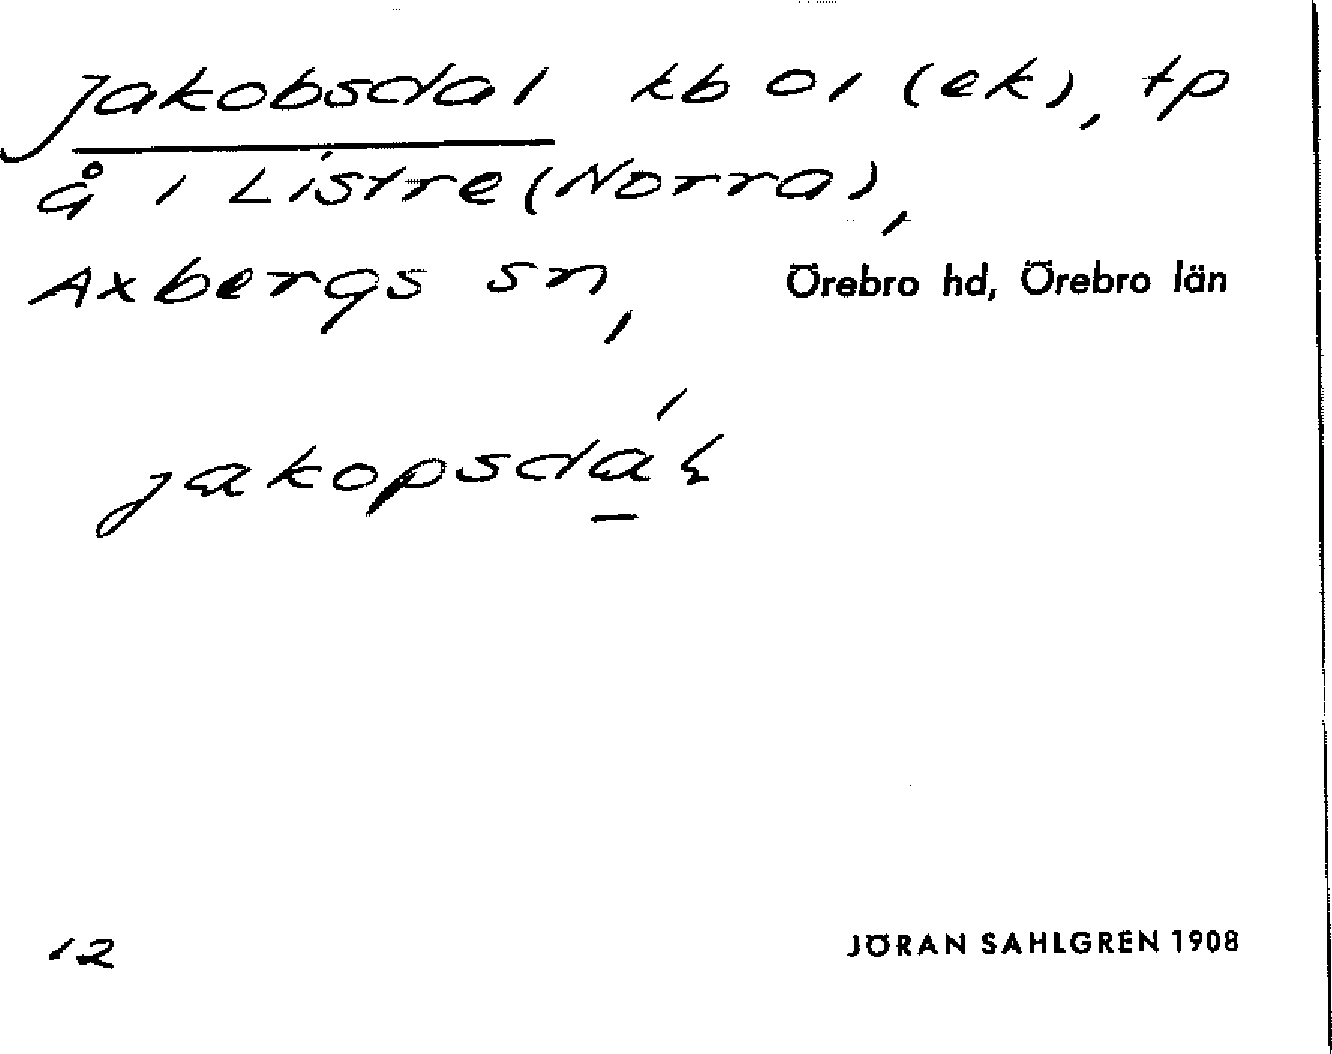 Jakobsdal kb O1 (ek), tp
å 1 Listre (Norra),
Axbergs sn, Örebro hd, Örebro län
jakopsdá
12 JÖRAN SAHLGREN 1908